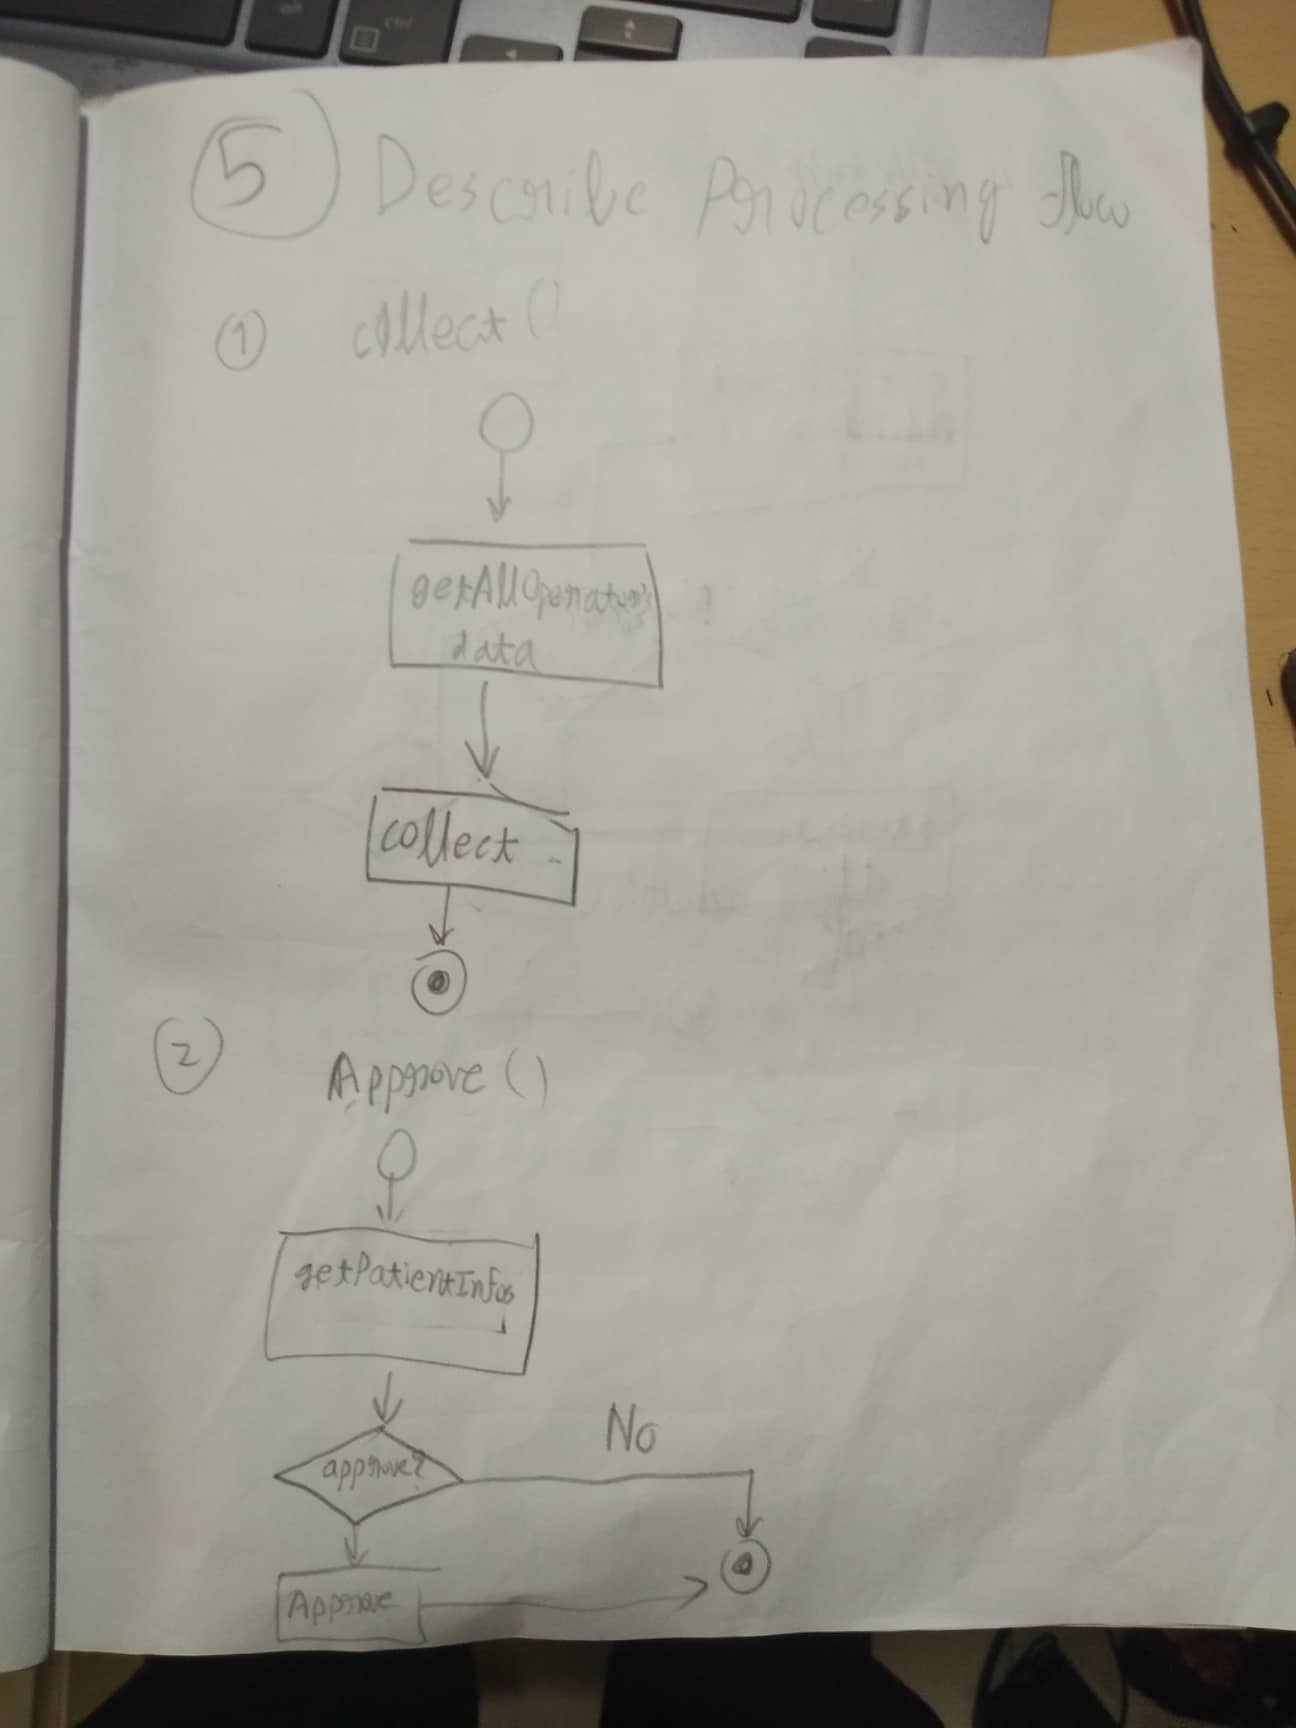 5 Describe Processing flow
1 collect ()
getAllOperator's
data
collect
2 Approve ()
getPatientInfos
No
approve?
Approve